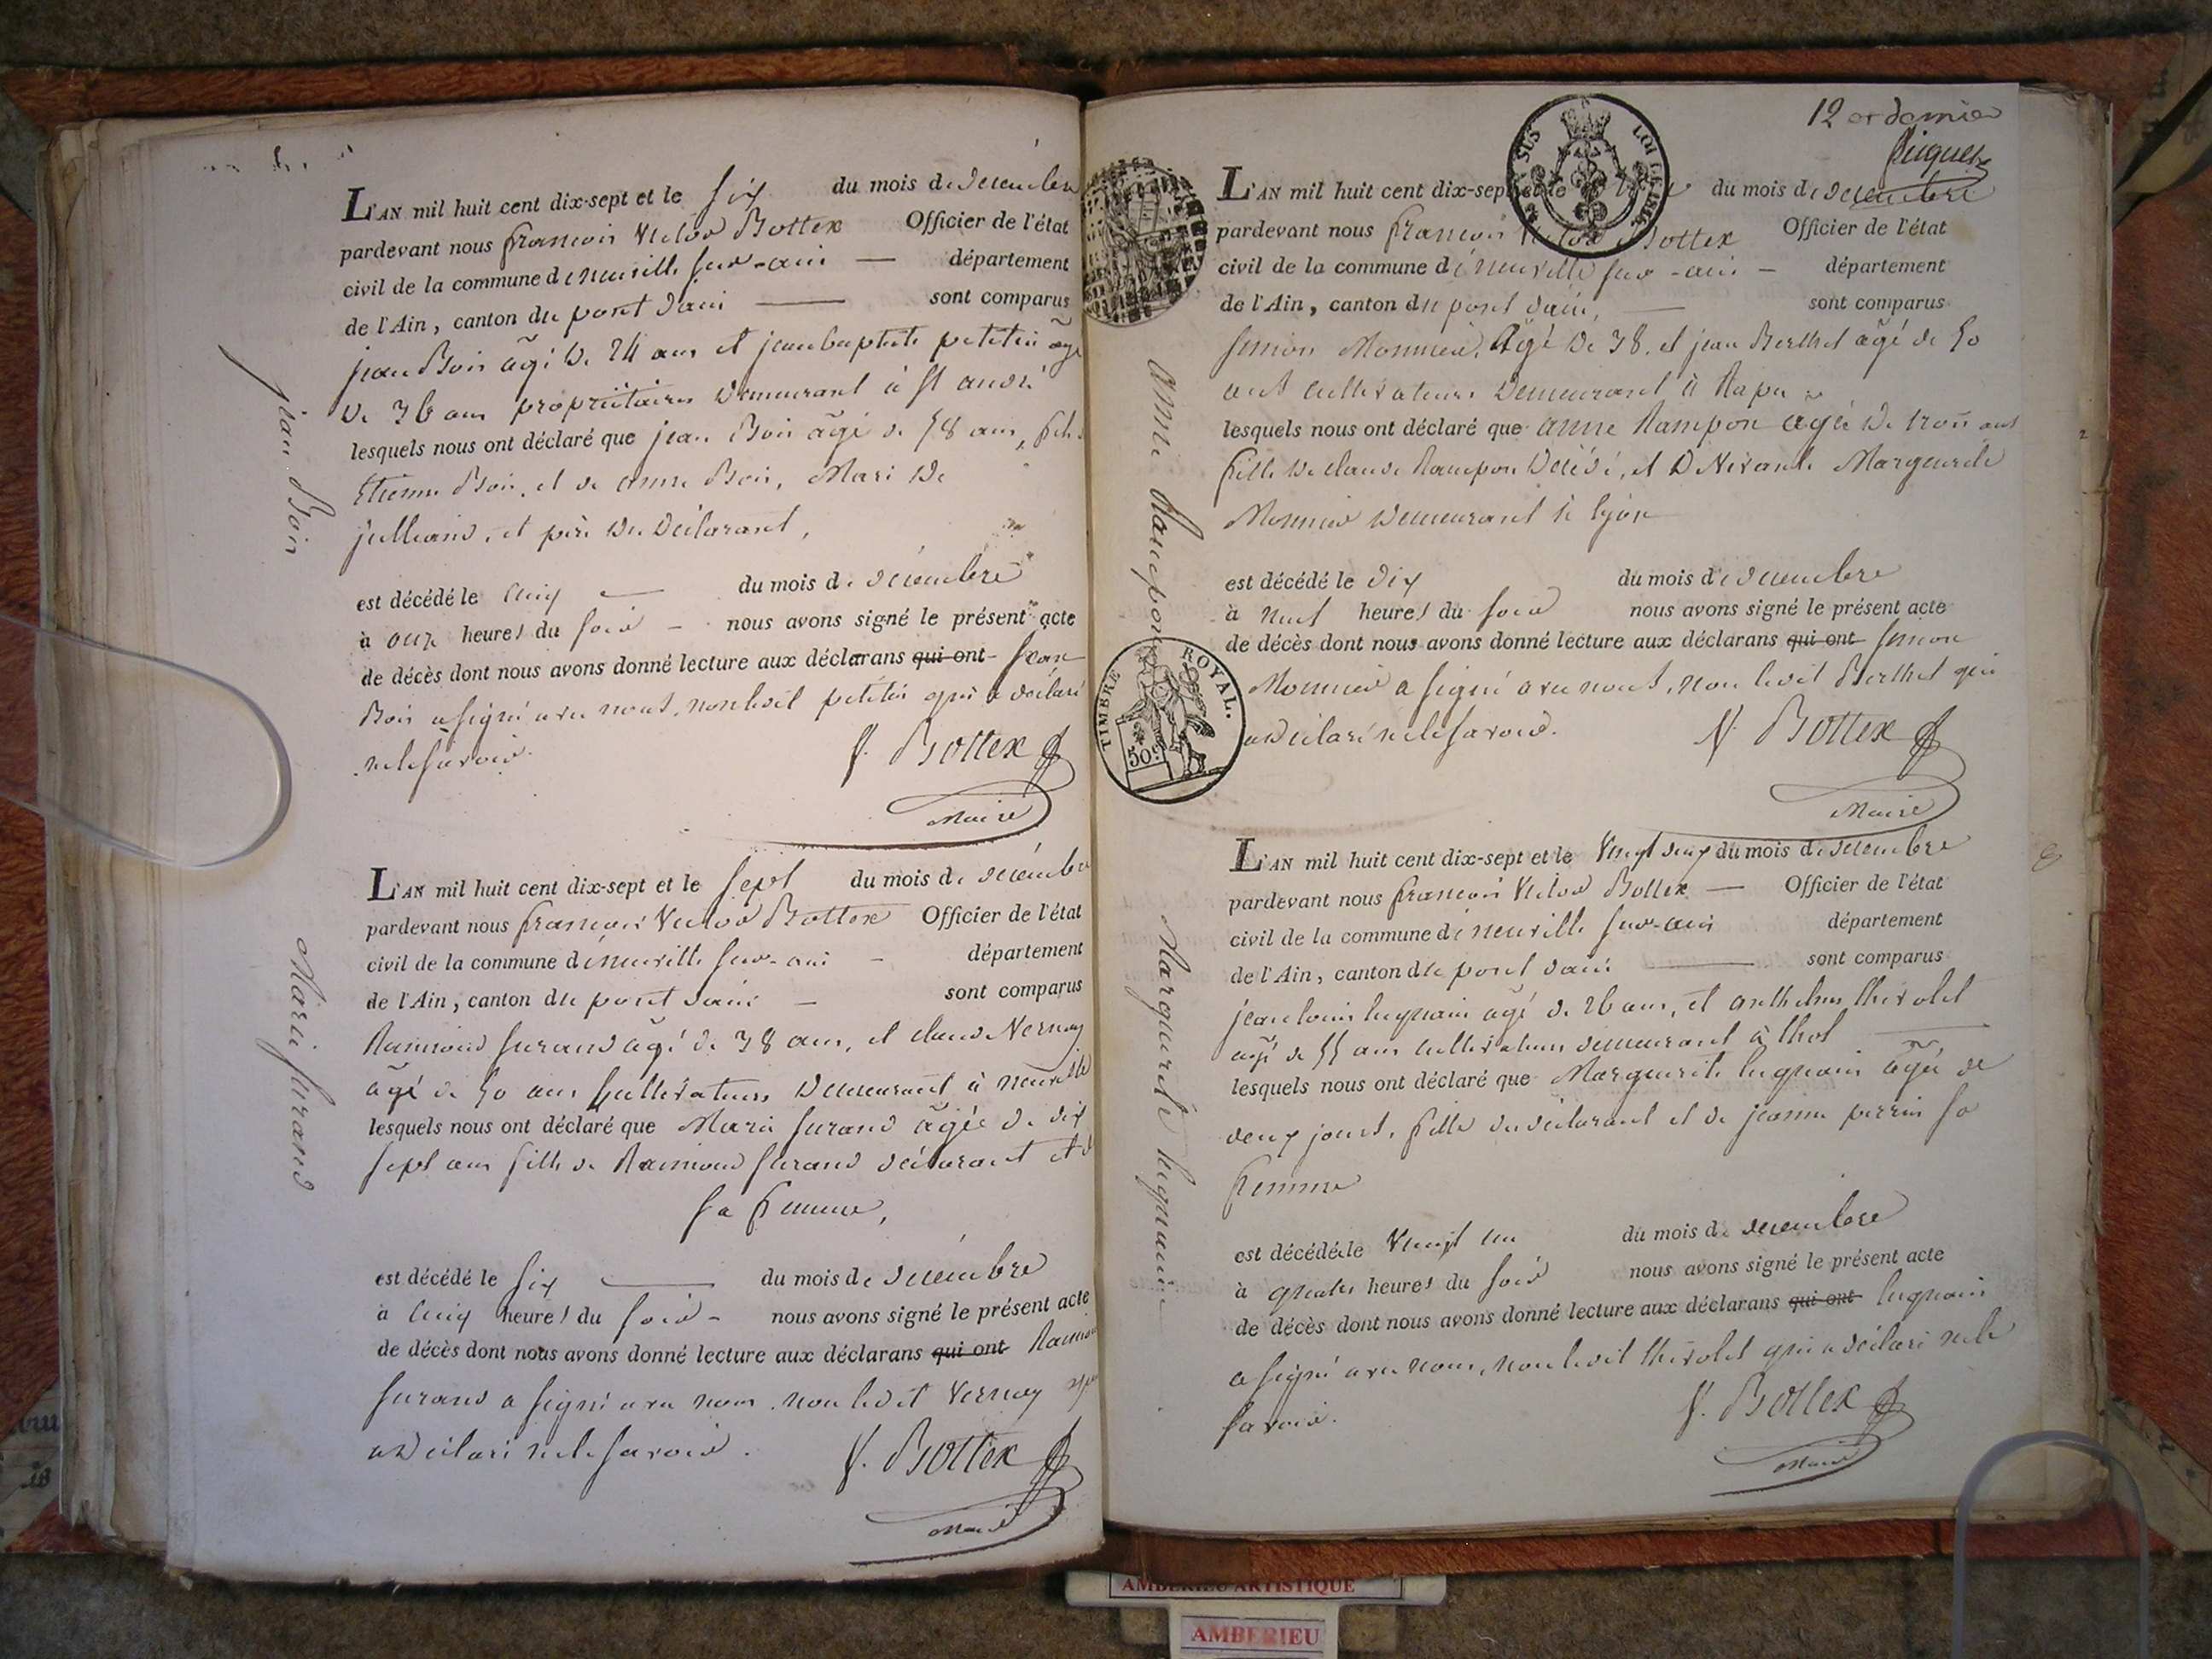 L'AN mil huit cent dix-sept et le six du mois de decembre
pardevant nous françois Victor Bottex Officier de l'état
civil de la commune de neuville sur-ain — département
de l'Ain, canton du pont dain — sont comparus
jean Boin âgé de 24 ans et jean baptiste petetin âgé
de 36 ans propriétaires demeurant à st andré
lesquels nous ont déclaré que jean Boin âgé de 58 ans, fils
Etienne Boin, et de anne Boin, Mari de
julliand, et père du déclarant,
est décédé le cinq — du mois de décembre
à onze heures du soir - nous avons signé le présent acte
de décès dont nous avons donné lecture aux déclarans qui ont jean
Boin a signé avec nous, non ledit petetin qui a déclaré
ne le savoir.
V. Bottex
Maire
jean Boin
L'AN mil huit cent dix-sept et le sept du mois de décembre
pardevant nous françois Victor Bottex Officier de l'état
civil de la commune de neuville sur-ain - département
de l'Ain, canton du pont dain — sont comparus
Raimond furand âgé de 38 ans, et claude Vernay
âgé de 50 ans cultivateurs demeurant à neuville
lesquels nous ont déclaré que Marie furand âgée de dix
sept ans fille de Raimond furand déclarant et de
sa femme,
est décédé le six — du mois de décembre
à cinq heures du soir - nous avons signé le présent acte
de décès dont nous avons donné lecture aux déclarans qui ont Raimond
furand a signé avec nous, non ledit Vernay qui
a déclaré ne le savoir.
V. Bottex
Maire
Marie furand
12 et dernier
L'AN mil huit cent dix-sept et le du mois de decembre
pardevant nous françois Victor Bottex Officier de l'état
civil de la commune de neuville sur-ain - département
de l'Ain, canton du pont dain, — sont comparus
simon Monnier, âgé de 38, et jean Berthet âgé de 50
ans cultivateurs demeurant à
lesquels nous ont déclaré que anne Rampon âgée de trois ans
fille de claude Rampon décédé, et de vivante Marguerite
Monnier demeurant à lyon
est décédé le dix du mois de decembre
à neuf heures du soir nous avons signé le présent acte
de décès dont nous avons donné lecture aux déclarans qui ont simon
Monnier a signé avec nous, non ledit Berthet qui
a déclaré ne le savoir.
V. Bottex
Maire
anne Rampon
TIMBRE ROYAL.
50c
L'AN mil huit cent dix-sept et le Vingt deux du mois de decembre
pardevant nous françois Victor Bottex — Officier de l'état
civil de la commune de neuville sur-ain département
de l'Ain, canton du pont dain — sont comparus
jean louis lugnain âgé de 26 ans, et anthelme thevolet
âgé de 55 ans cultivateurs demeurant à thol
lesquels nous ont déclaré que Marguerite lugnain âgée de
deux jours, fille du déclarant et de jeanne perrin sa
femme
est décédée le Vingt un du mois de decembre
à quatre heures du soir nous avons signé le présent acte
de décès dont nous avons donné lecture aux déclarans qui ont lugnain
a signé avec nous, non ledit thevolet qui a déclaré ne le
savoir.
V. Bottex
Maire
Marguerite lugnain
AMBERIEU ARTISTIQUE
AMBERIEU